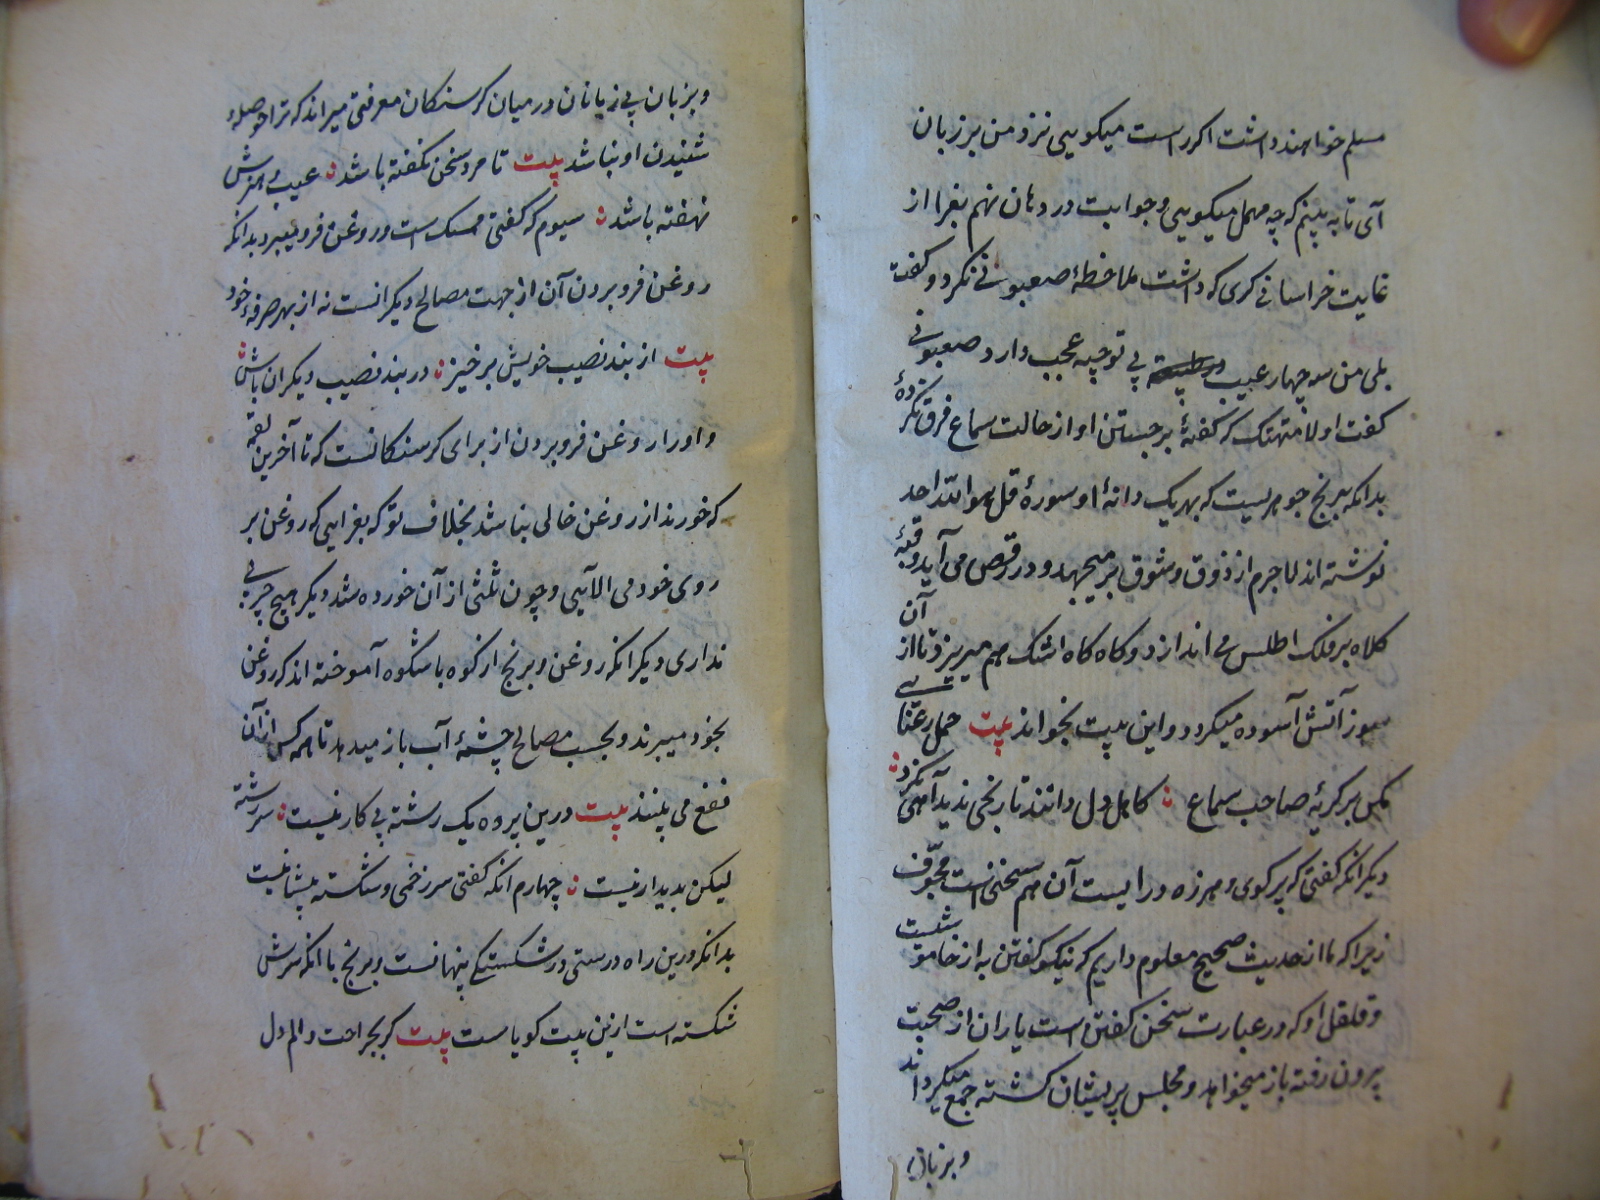 مسلم خواهند داشت اکر راست میکویی نزد من بر زبان
آی تا به بینم که چه مهمل میکویی و جوابت در دهان نهم بغرا از
غایت خراسانی کری که داشت ملاحظهٔ صعبونی نکرد و کفت
بلی من سه چهار عیب بی توجیه عجب دارد صعبونی
کفت اولا متهتک که کفتهٔ برجستن او از حالت سماع فرق نکردهٔ
بدانکه برنج جوهریست که بهر یک دانهٔ او سورهٔ قل هو الله احد
نوشته اند لاجرم از ذوق و شوق بر میجهد و در رقص می آید و قبهٔ
کلاه بر فلک اطلس می اندازد و کاه کاه اشک هم میریزد تا از آن
سوز آتش آسوده میکردد و این بیت بخواند بیت حمل رعنایی
مکن بر کریهٔ صاحب سماع ؛ کاهل دل دانند تا رنجی ندید آهی نکرد ؛
دیکر انکه کفتی که پر کوی و هرزه درایست آن هم سخنی است مجوّف
زیرا که ما از حدیث صحیح معلوم داریم که نیکو کفتن به از خاموشیست
و قلقل او که در عبارت سخن کفتن است یاران از صحبت
بیرون رفته باز میخواهد و مجلس پریشان کشته جمع میکرداند
و بزبان
و بزبان بی زبانان در میان کرسنکان معرفتی میراند که ترا حوصلهٔ
شنیدن او نباشد بیت تا مرد سخن نکفته باشد ؛ عیب و هنرش
نهفته باشد ؛ سیوم که کفتی ممسک است و روغن فرو میبرد بدانکه
روغن فرو بردن آن از جهت مصالح دیکرانست نه از بهر صرفهٔ خود
بیت از بند نصیب خویش برخیز ؛ در بند نصیب دیکران باش ؛
و او را روغن فرو بردن از برای کرسنکانست که تا آخرین لقمه
که خورند از روغن خالی نباشد بخلاف تو که بغرایی که روغن بر
روی خود می الآیی و چون ثلثی از آن خورده شد دیکر هیچ چربی
نداری دیکر انکه روغن و برنج از کوه باشکوه آموخته اند که روغن
بخود میبرند و بحسب مصالح چشمهٔ آب باز میدهد تا همه کس از آن
نفع می بینند بیت درین پرده یک رشته بی کار نیست ؛ سر رشته
لیکن پدیدار نیست ؛ چهارم انکه کفتی سر زخمی و شکسته پیشانیست
بدانکه درین راه درستی در شکستکی پنهانست و برنج با انکه سرش
شکسته است ازین بیت کویاست بیت کر بجراحت و الم دل